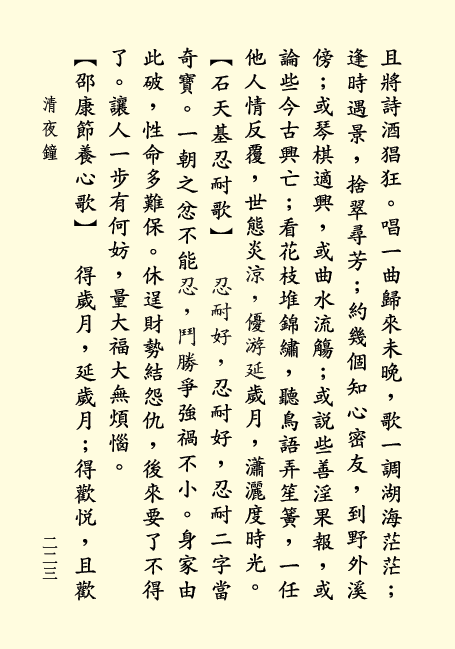 且將詩酒猖狂。唱一曲歸來未晚，歌一調湖海茫茫；
逢時遇景，捨翠尋芳；約幾個知心密友，到野外溪
傍；或琴棋適興，或曲水流觴；或說些善淫果報，或
論些今古興亡；看花枝堆錦繡，聽鳥語弄笙簧，一任
他人情反覆，世態炎涼，優游延歲月，瀟灑度時光。
【石天基忍耐歌】　忍耐好，忍耐好，忍耐二字當
奇寶。一朝之忿不能忍，鬥勝爭強禍不小。身家由
此破，性命多難保。休逞財勢結怨仇，後來要了不得
了。讓人一步有何妨，量大福大無煩惱。
【邵康節養心歌】　得歲月，延歲月；得歡悅，且歡
清夜鐘
二二三